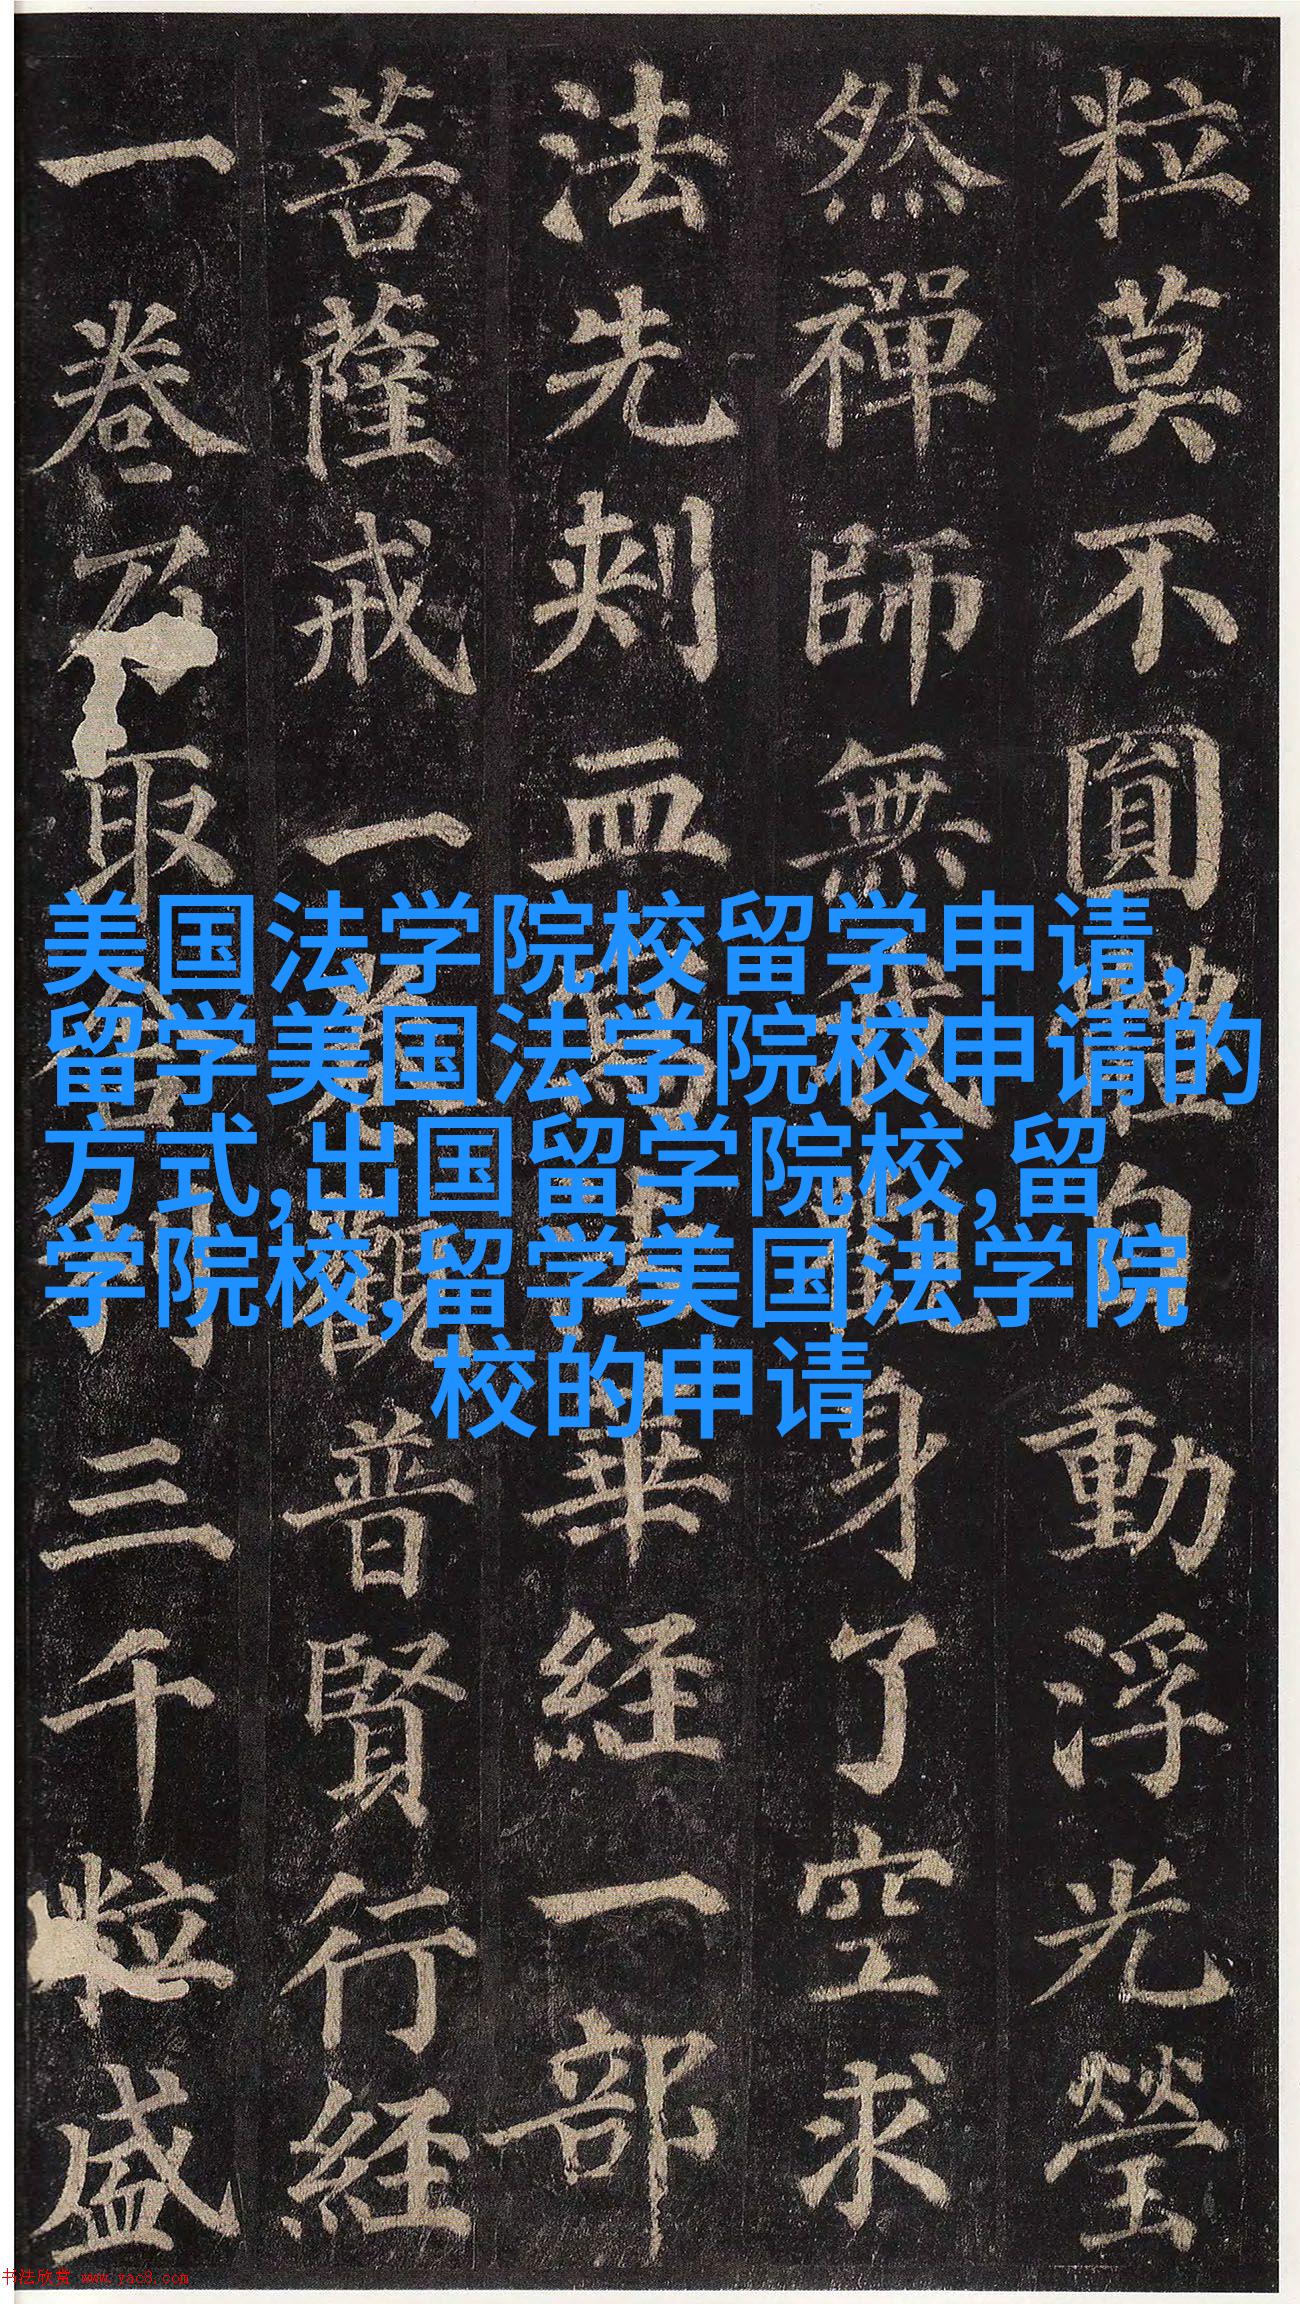 粒莫不圓體自動浮光瑩
然禪師無我觀身了空求
法先刾血寫法華経一部
菩薩戒一卷觀普賢行経
一卷乃取舍利三千粒盛
美国法学院校留学申请,
留学美国法学院校申请的
方式,出国留学院校,留
学院校,留学美国法学院
校的申请
书法欣赏 www.yac8.com